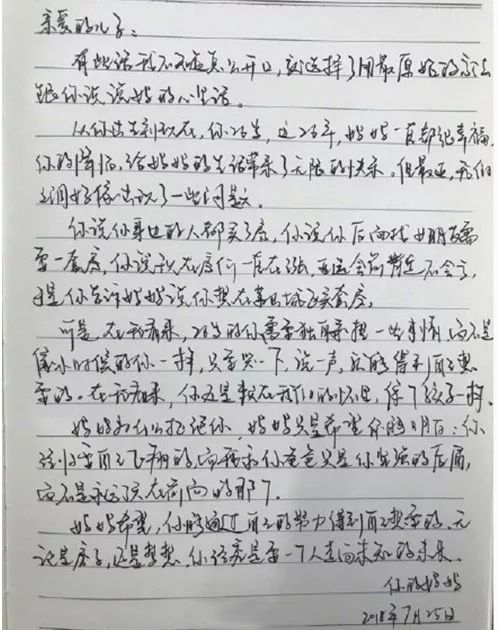 亲爱的儿子：
有些话我不知道怎么开口，就选择了用最原始的方式
跟你说说妈的心里话。
从你出生到现在，你26岁，这26年，妈妈一直都很幸福，
你的降临，给妈妈的生活带来了无限的快乐。但最近，我们
之间好像出现了一些问题。
你说你身边的人都买了房，你说你后面找女朋友需
要一套房，你说现在房价一直在涨，亚运会前肯定不会亏，
于是你告诉妈妈说你想在某县城买套房。
可是，在我看来，26岁的你需要独自承担一些事情，而不是
像小时候的你一样，只要哭一下，说一声，就能得到自己想
要的。在我看来，你还是躲在我们的怀里，像个孩子一样。
妈妈为什么拒绝你，妈妈只是希望你能明白：你
该归要自己飞翔的，而我和你爸爸只是你坚强的后盾，
而不是永远该在前面的那个。
妈妈希望，你能通过自己的努力得到自己想要的，无
论是房子，还是梦想，你终究是要一个人走向未知的未来。
你的妈妈
2018年7月25日